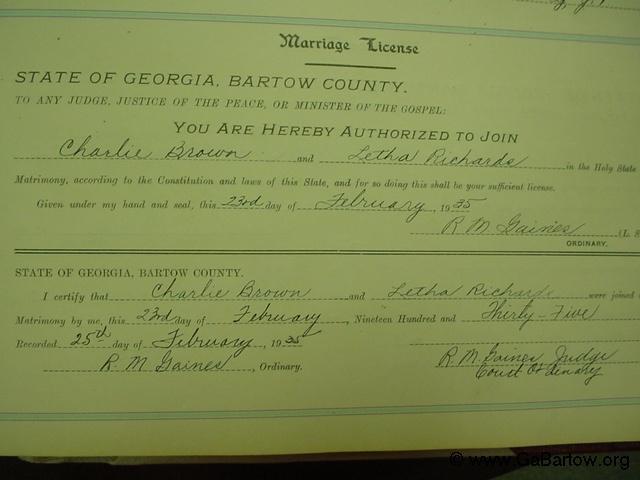 Marriage License
STATE OF GEORGIA, BARTOW COUNTY.
TO ANY JUDGE, JUSTICE OF THE PEACE, OR MINISTER OF THE GOSPEL:
YOU ARE HEREBY AUTHORIZED TO JOIN
Charlie Brown and Letha Richards in the Holy State
Matrimony, according to the Constitution and laws of this State, and for so doing this shall be your sufficient license.
Given under my hand and seal, this 23rd day of February, 1935
R. M. Gaines (L. S
ORDINARY.
STATE OF GEORGIA, BARTOW COUNTY.
I certify that Charlie Brown and Letha Richards were joined
Matrimony by me, this 23rd day of February, Nineteen Hundred and Thirty-Five
Recorded 25th day of February, 1935
R. M. Gaines, Ordinary.
R. M. Gaines, Judge
Court Ordinary
© www.GaBartow.org